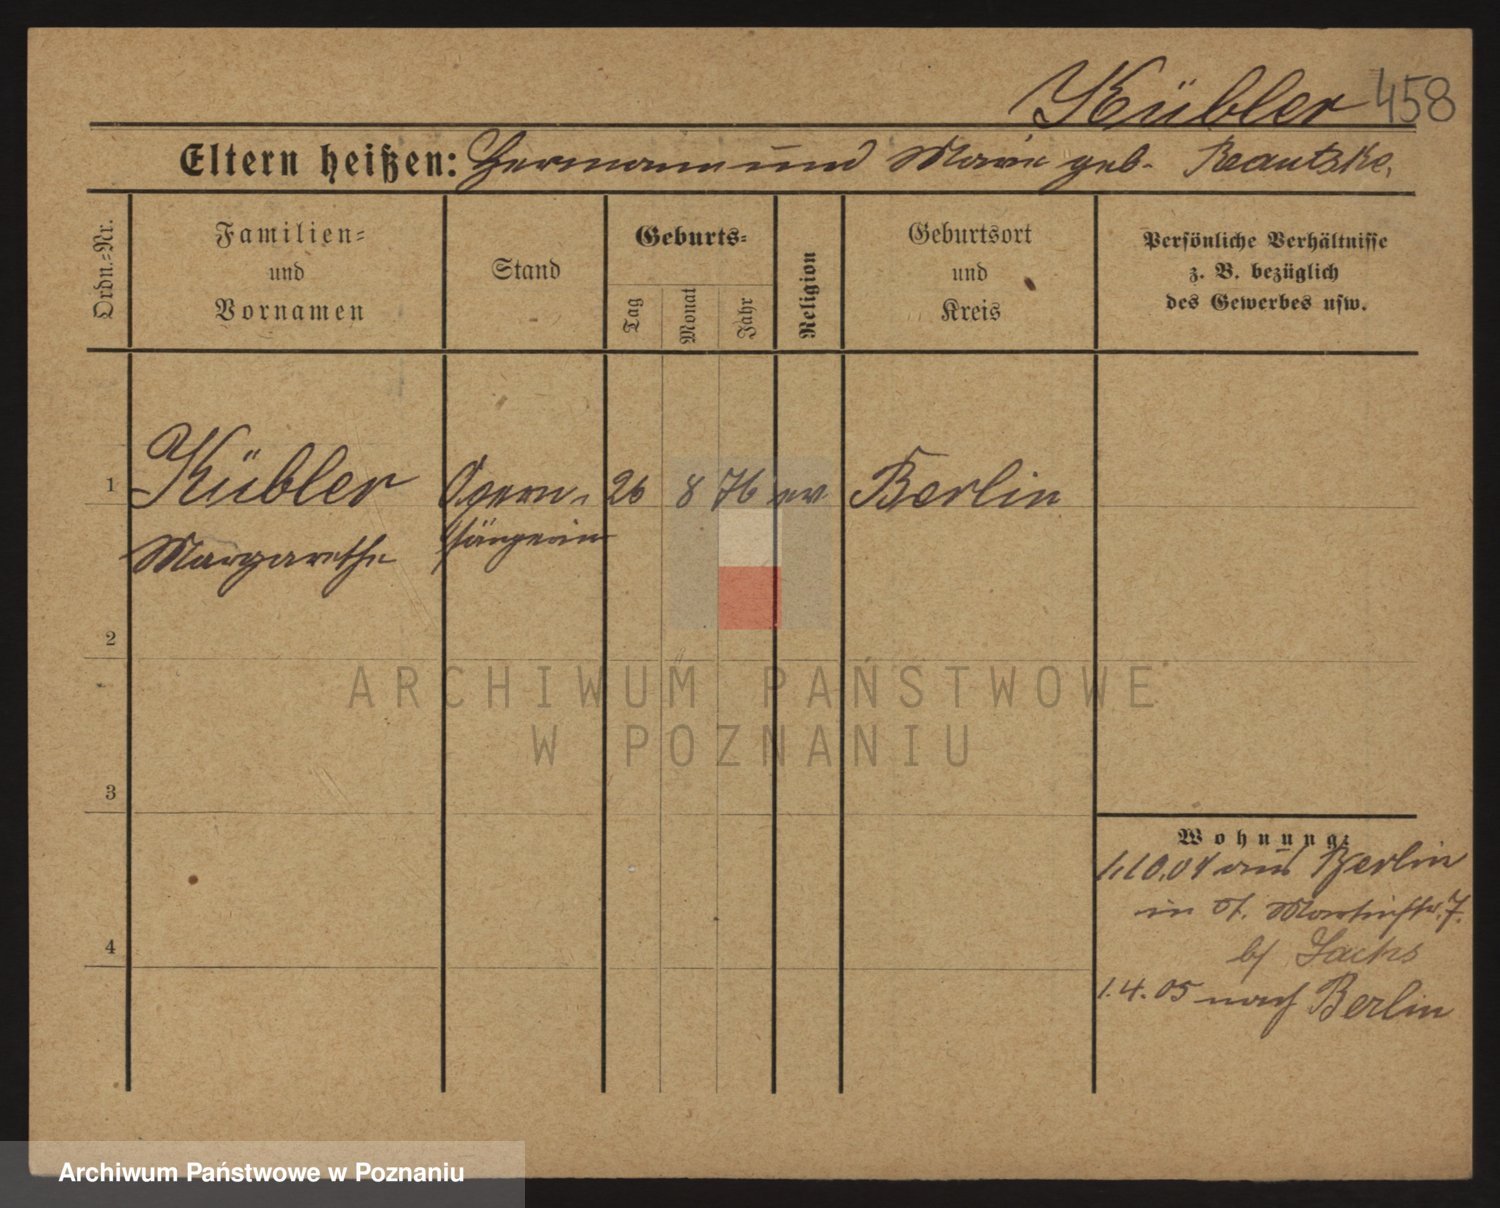 Kübler 458
Eltern heißen: Hermann und Marie geb. Rautzke.
Ordn.-Nr.
Familien-
und
Vornamen
Stand
Geburts-
Tag
Monat
Jahr
Religion
Geburtsort
und
Kreis
Persönliche Verhältnisse
z. B. bezüglich
des Gewerbes usw.
1 Kübler Opern- 26 8 76 ev Berlin
Margarethe sängerin
2
ARCHIWUM PAŃSTWOWE
W POZNANIU
3
Wohnung:
1.10.04 aus Berlin
in St. Martinstr. 7.
b/ Sachs
4
1.4.05 nach Berlin
Archiwum Państwowe w Poznaniu